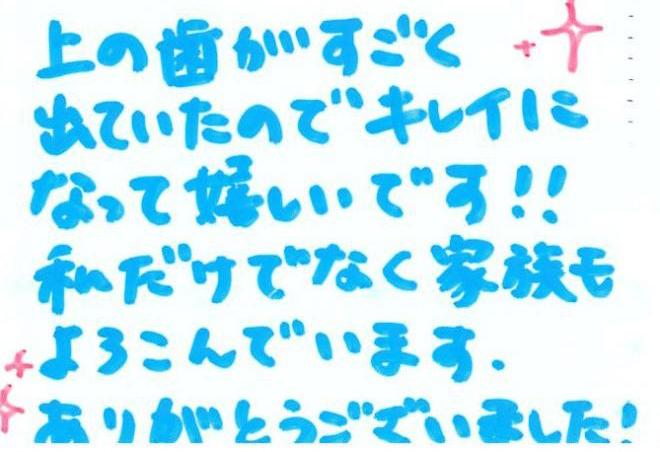 上の歯がすごく
出ていたのでキレイに
なって嬉しいです!!
私だけでなく家族も
よろこんでいます.
ありがとうございました!